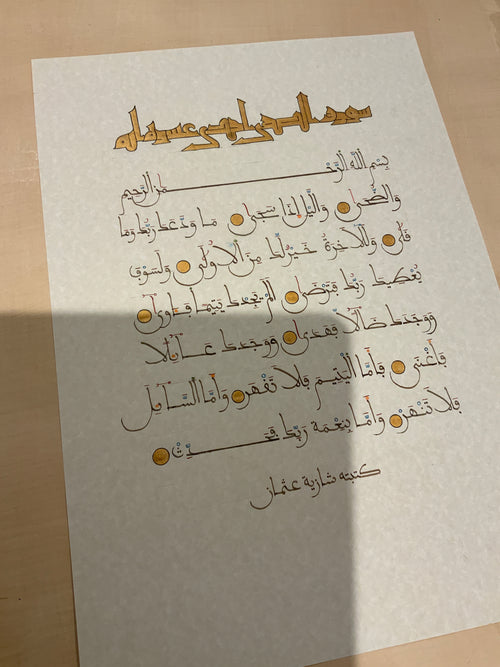 سورة الضحى احدى عشرة اية
بِسْمِ اللَّهِ الرَّحْمٰنِ الرَّحِيمِ
وَالضُّحَىٰ وَالَّيْلِ إِذَا سَجَىٰ مَا وَدَّعَكَ رَبُّكَ وَمَا
قَلَىٰ وَلَلْآخِرَةُ خَيْرٌ لَّكَ مِنَ الْأُولَىٰ وَلَسَوْفَ
يُعْطِيكَ رَبُّكَ فَتَرْضَىٰ أَلَمْ يَجِدْكَ يَتِيمًا فَـَٔاوَىٰ
وَوَجَدَكَ ضَالًّا فَهَدَىٰ وَوَجَدَكَ عَآئِلًا
فَأَغْنَىٰ فَأَمَّا الْيَتِيمَ فَلَا تَقْهَرْ وَأَمَّا السَّآئِلَ
فَلَا تَنْهَرْ وَأَمَّا بِنِعْمَةِ رَبِّكَ فَحَدِّثْ
كتبته شازية عثمان